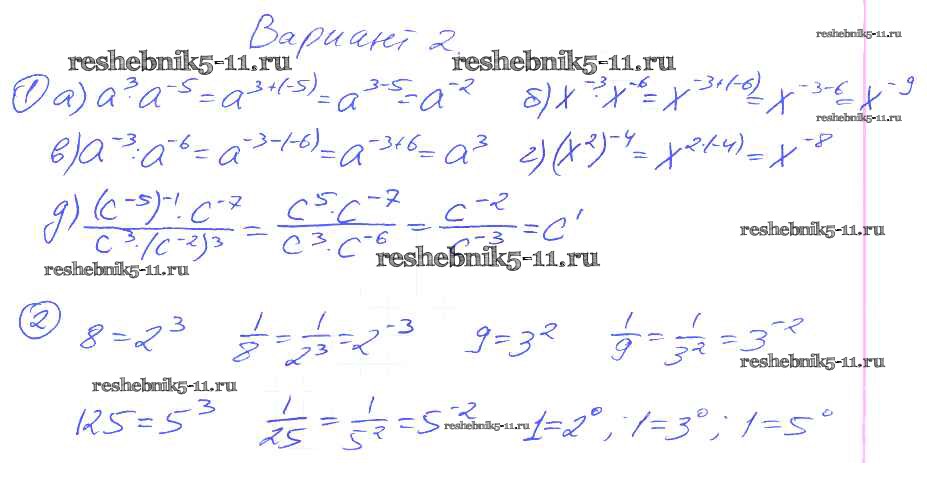 Вариант 2.
reshebnik5-11.ru
reshebnik5-11.ru reshebnik5-11.ru
① а) a³·a⁻⁵ = a³⁺⁽⁻⁵⁾ = a³⁻⁵ = a⁻² б) x⁻³·x⁻⁶ = x⁻³⁺⁽⁻⁶⁾ = x⁻³⁻⁶ = x⁻⁹
reshebnik5-11.ru
в) a⁻³:a⁻⁶ = a⁻³⁻⁽⁻⁶⁾ = a⁻³⁺⁶ = a³ г) (x²)⁻⁴ = x²·⁽⁻⁴⁾ = x⁻⁸
д) (c⁻⁵)⁻¹·c⁻⁷ / c³·(c⁻²)³ = c⁵·c⁻⁷ / c³·c⁻⁶ = c⁻² / c⁻³ = c¹
reshebnik5-11.ru
reshebnik5-11.ru
reshebnik5-11.ru
② 8 = 2³ 1/8 = 1/2³ = 2⁻³ 9 = 3² 1/9 = 1/3² = 3⁻²
reshebnik5-11.ru
reshebnik5-11.ru
125 = 5³ 1/25 = 1/5² = 5⁻² 1 = 2⁰; 1 = 3⁰; 1 = 5⁰
reshebnik5-11.ru